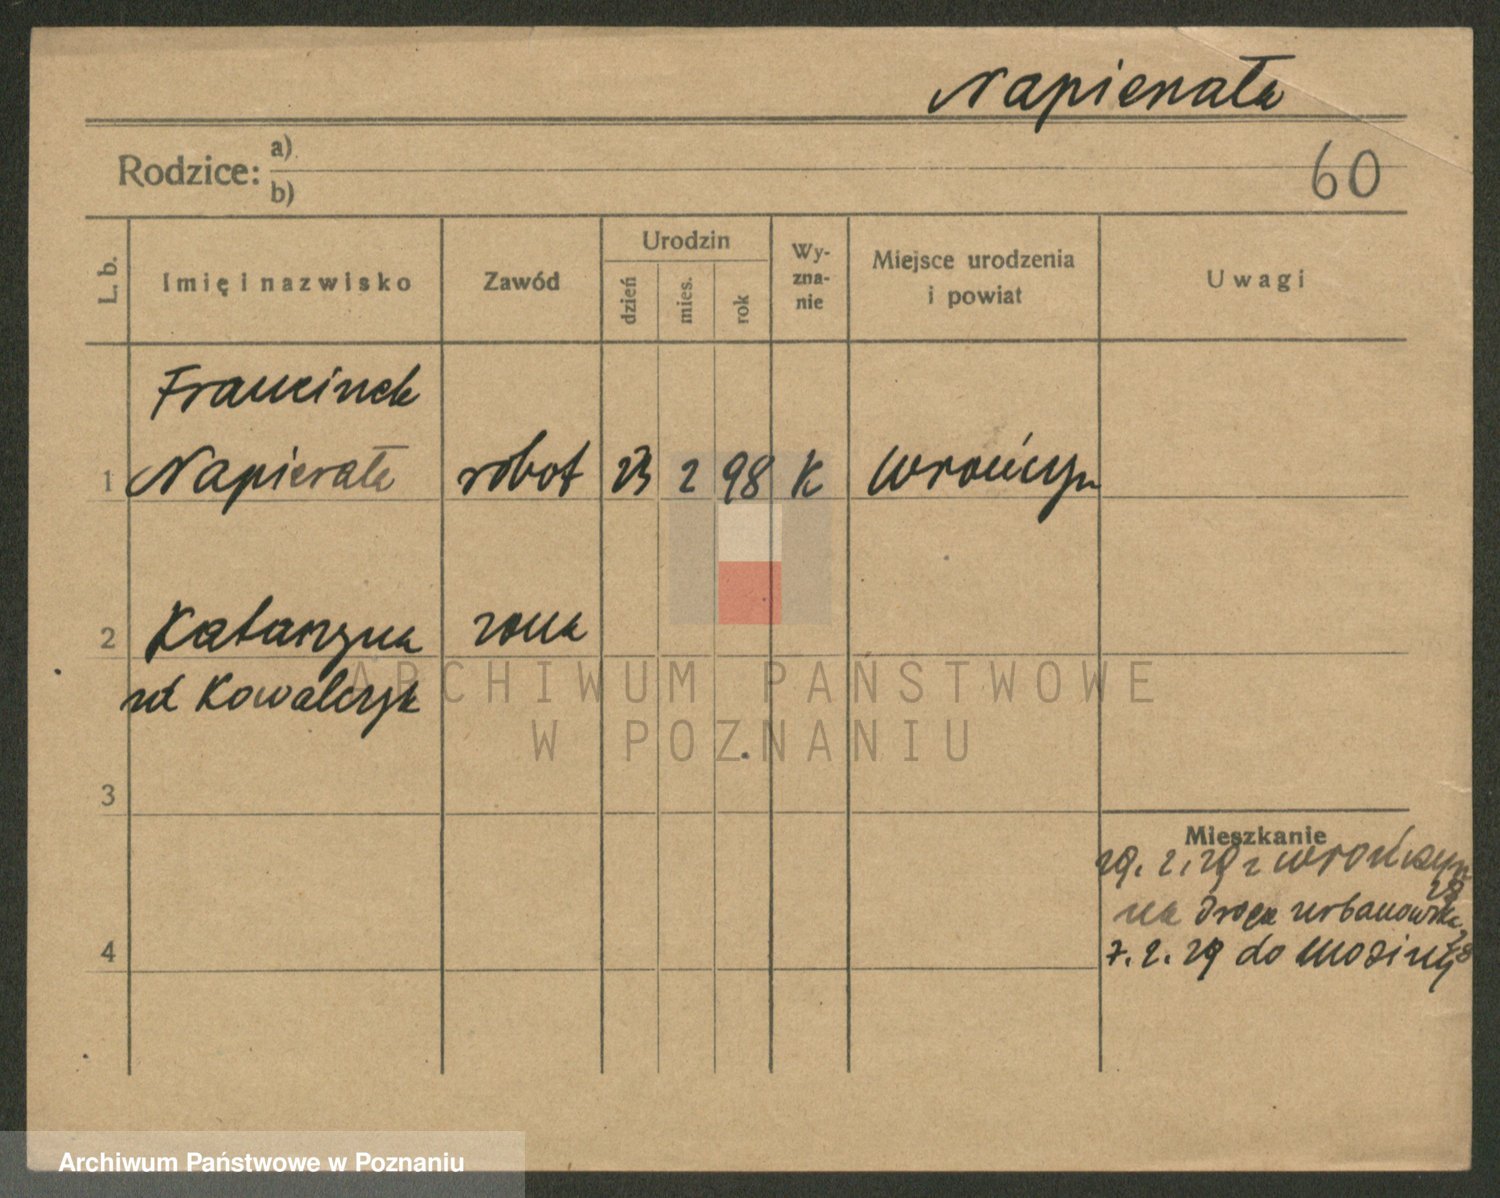 Napierała
Rodzice: a)
b)
60
L. b.
Imię i nazwisko
Zawód
Urodzin
dzień
mies.
rok
Wy-
zna-
nie
Miejsce urodzenia
i powiat
Uwagi
Franciszek
1 Napierała robot 23 2 98 K Wrończyn
2 Katarzyna żona
rd Kowalczyk
3
Mieszkanie
29. 2. 29 z Wrończyn
na Droga Urbanowska
4
7. 2. 29 do Mosiny
ARCHIWUM PAŃSTWOWE
W POZNANIU
Archiwum Państwowe w Poznaniu